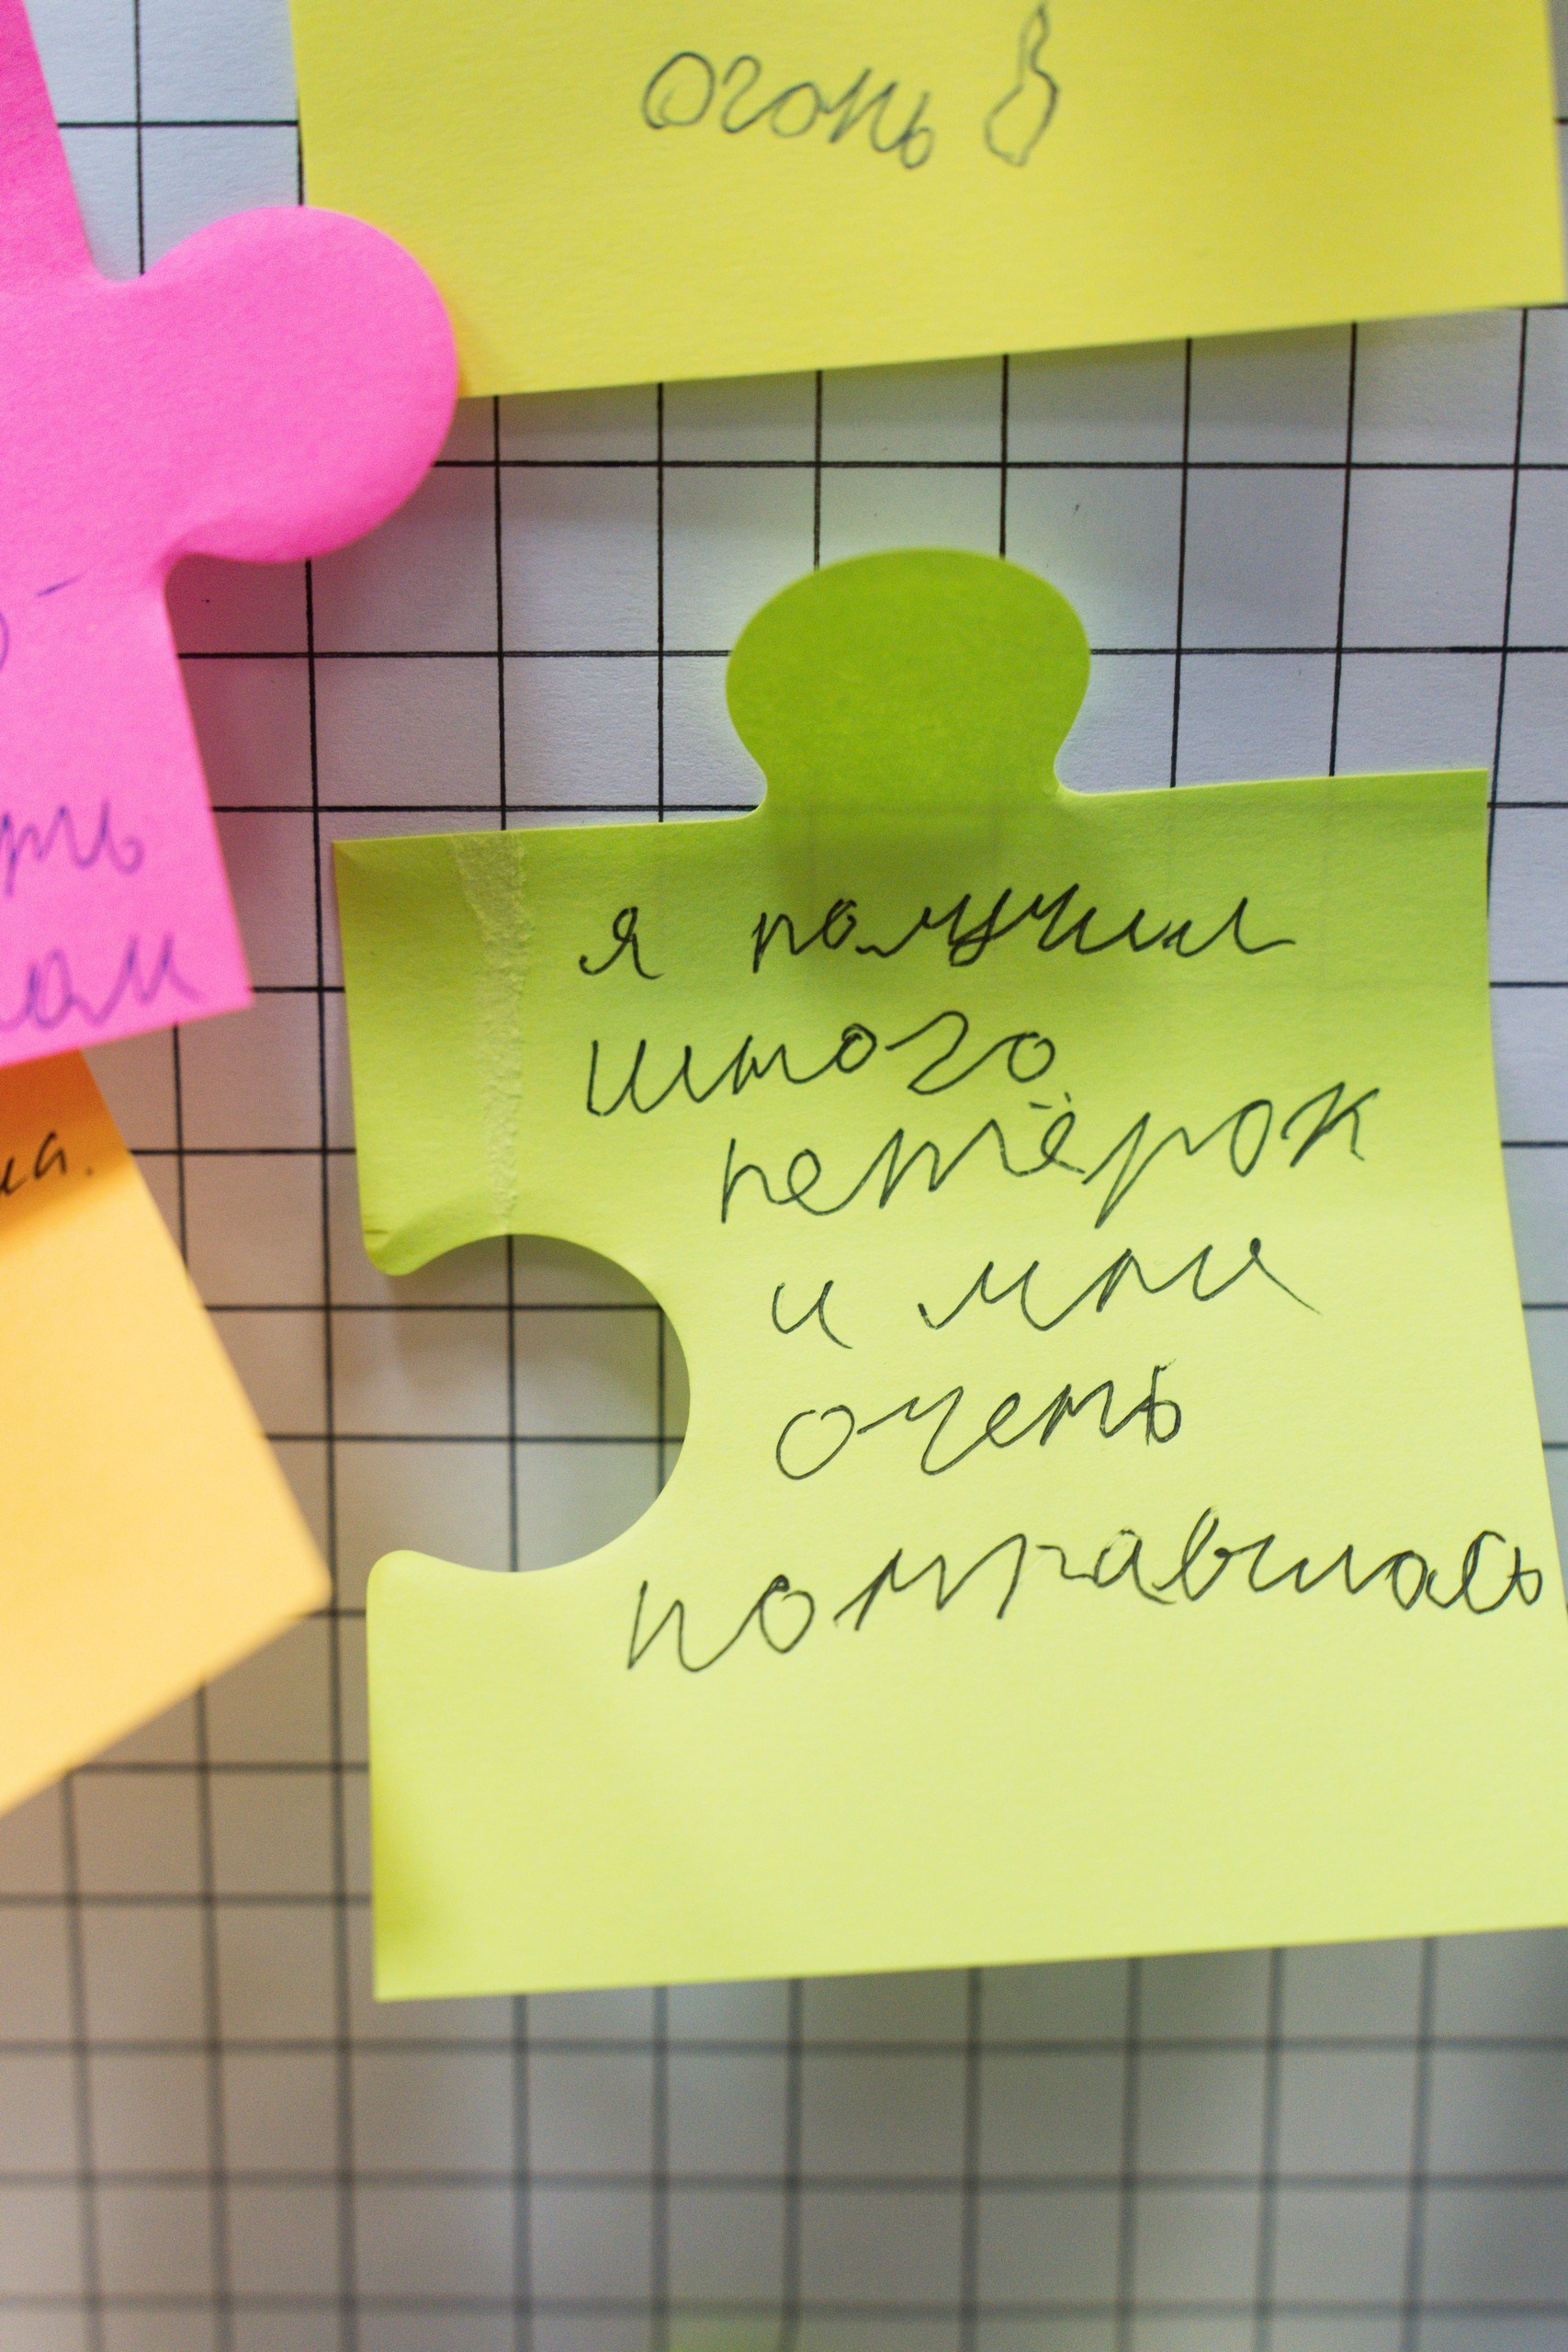 огонь
я получил
много
петёрок
и мни
очень
понравилась